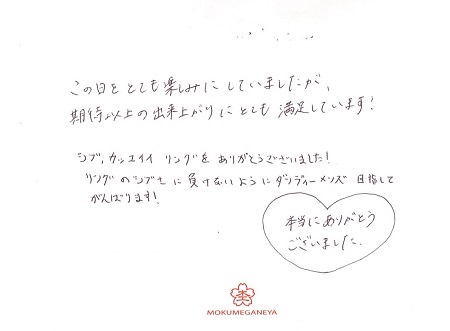 この日をとても楽しみにしていましたが、
期待以上の出来上がりにとても満足しています!
シブ,カッコイイ リングを ありがとうございました!
リングのシブさに負けないようにダンディーメンズ目指して
がんばります!
本当にありがとう
ございました。
MOKUMEGANEYA